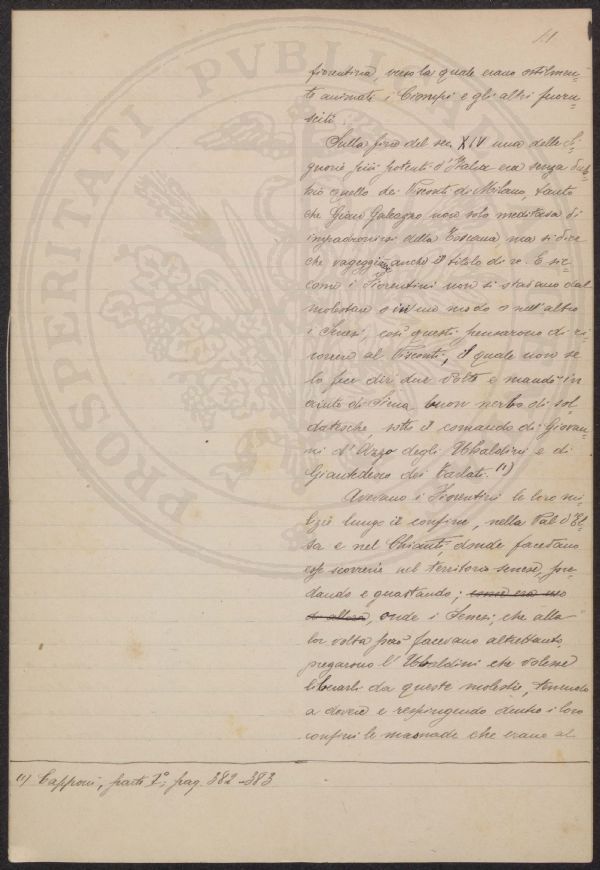 11
fiorentina, verso la quale erano ostilmen-
te animati i Ciompi e gli altri fuoru-
sciti.
Sulla fine del sec. XIV una delle Si-
gnorie più potenti d'Italia era senza dub-
bio quella dei Visconti di Milano, tanto
che Gian Galeazzo non solo meditava di
impadronirsi della Toscana ma si dice
che vagheggiasse anche il titolo di re. E sic-
come i Fiorentini non si stavano dal
molestare o in un modo o nell'altro
i Senesi, così questi pensarono di ri-
correre al Visconti, il quale non se
lo fece dir due volte e mandò in
aiuto di Siena buon nerbo di sol
datesche sotto il comando di Giovan-
ni d'Azzo degli Ubaldini e di
Giantedesco dei Tarlati. (1)
Avevano i Fiorentini le loro mi-
lizie lungo il confine, nella Val d'El-
sa e nel Chianti, donde facevano
scorrerie nel territorio senese, pre-
dando e guastando; come era uso
di allora, onde i Senesi, che alla
lor volta però facevano altrettanto,
pregarono l'Ubaldini che volesse
liberarli da queste molestie, tenendo
a dovere e respingendo dentro i loro
confini le masnade che erano al
(1) Capponi, parte 1º, pag. 382-383
PROSPERITATI PVBLICAE